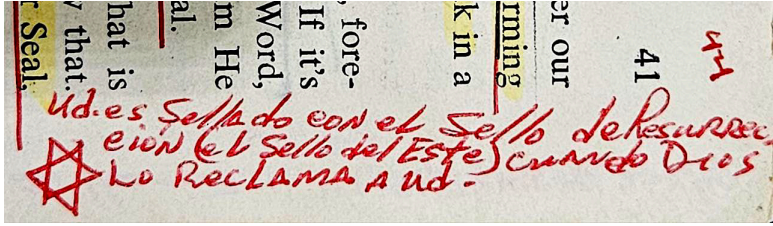 44
41
er our
rming
k in a
, fore-
If it's
Word,
m He
al.
hat is
y that.
r Seal,
Ud. es Sellado con el Sello de Resurrec
cion (el Sello del Este) cuando Dios
Lo Reclama a Ud.